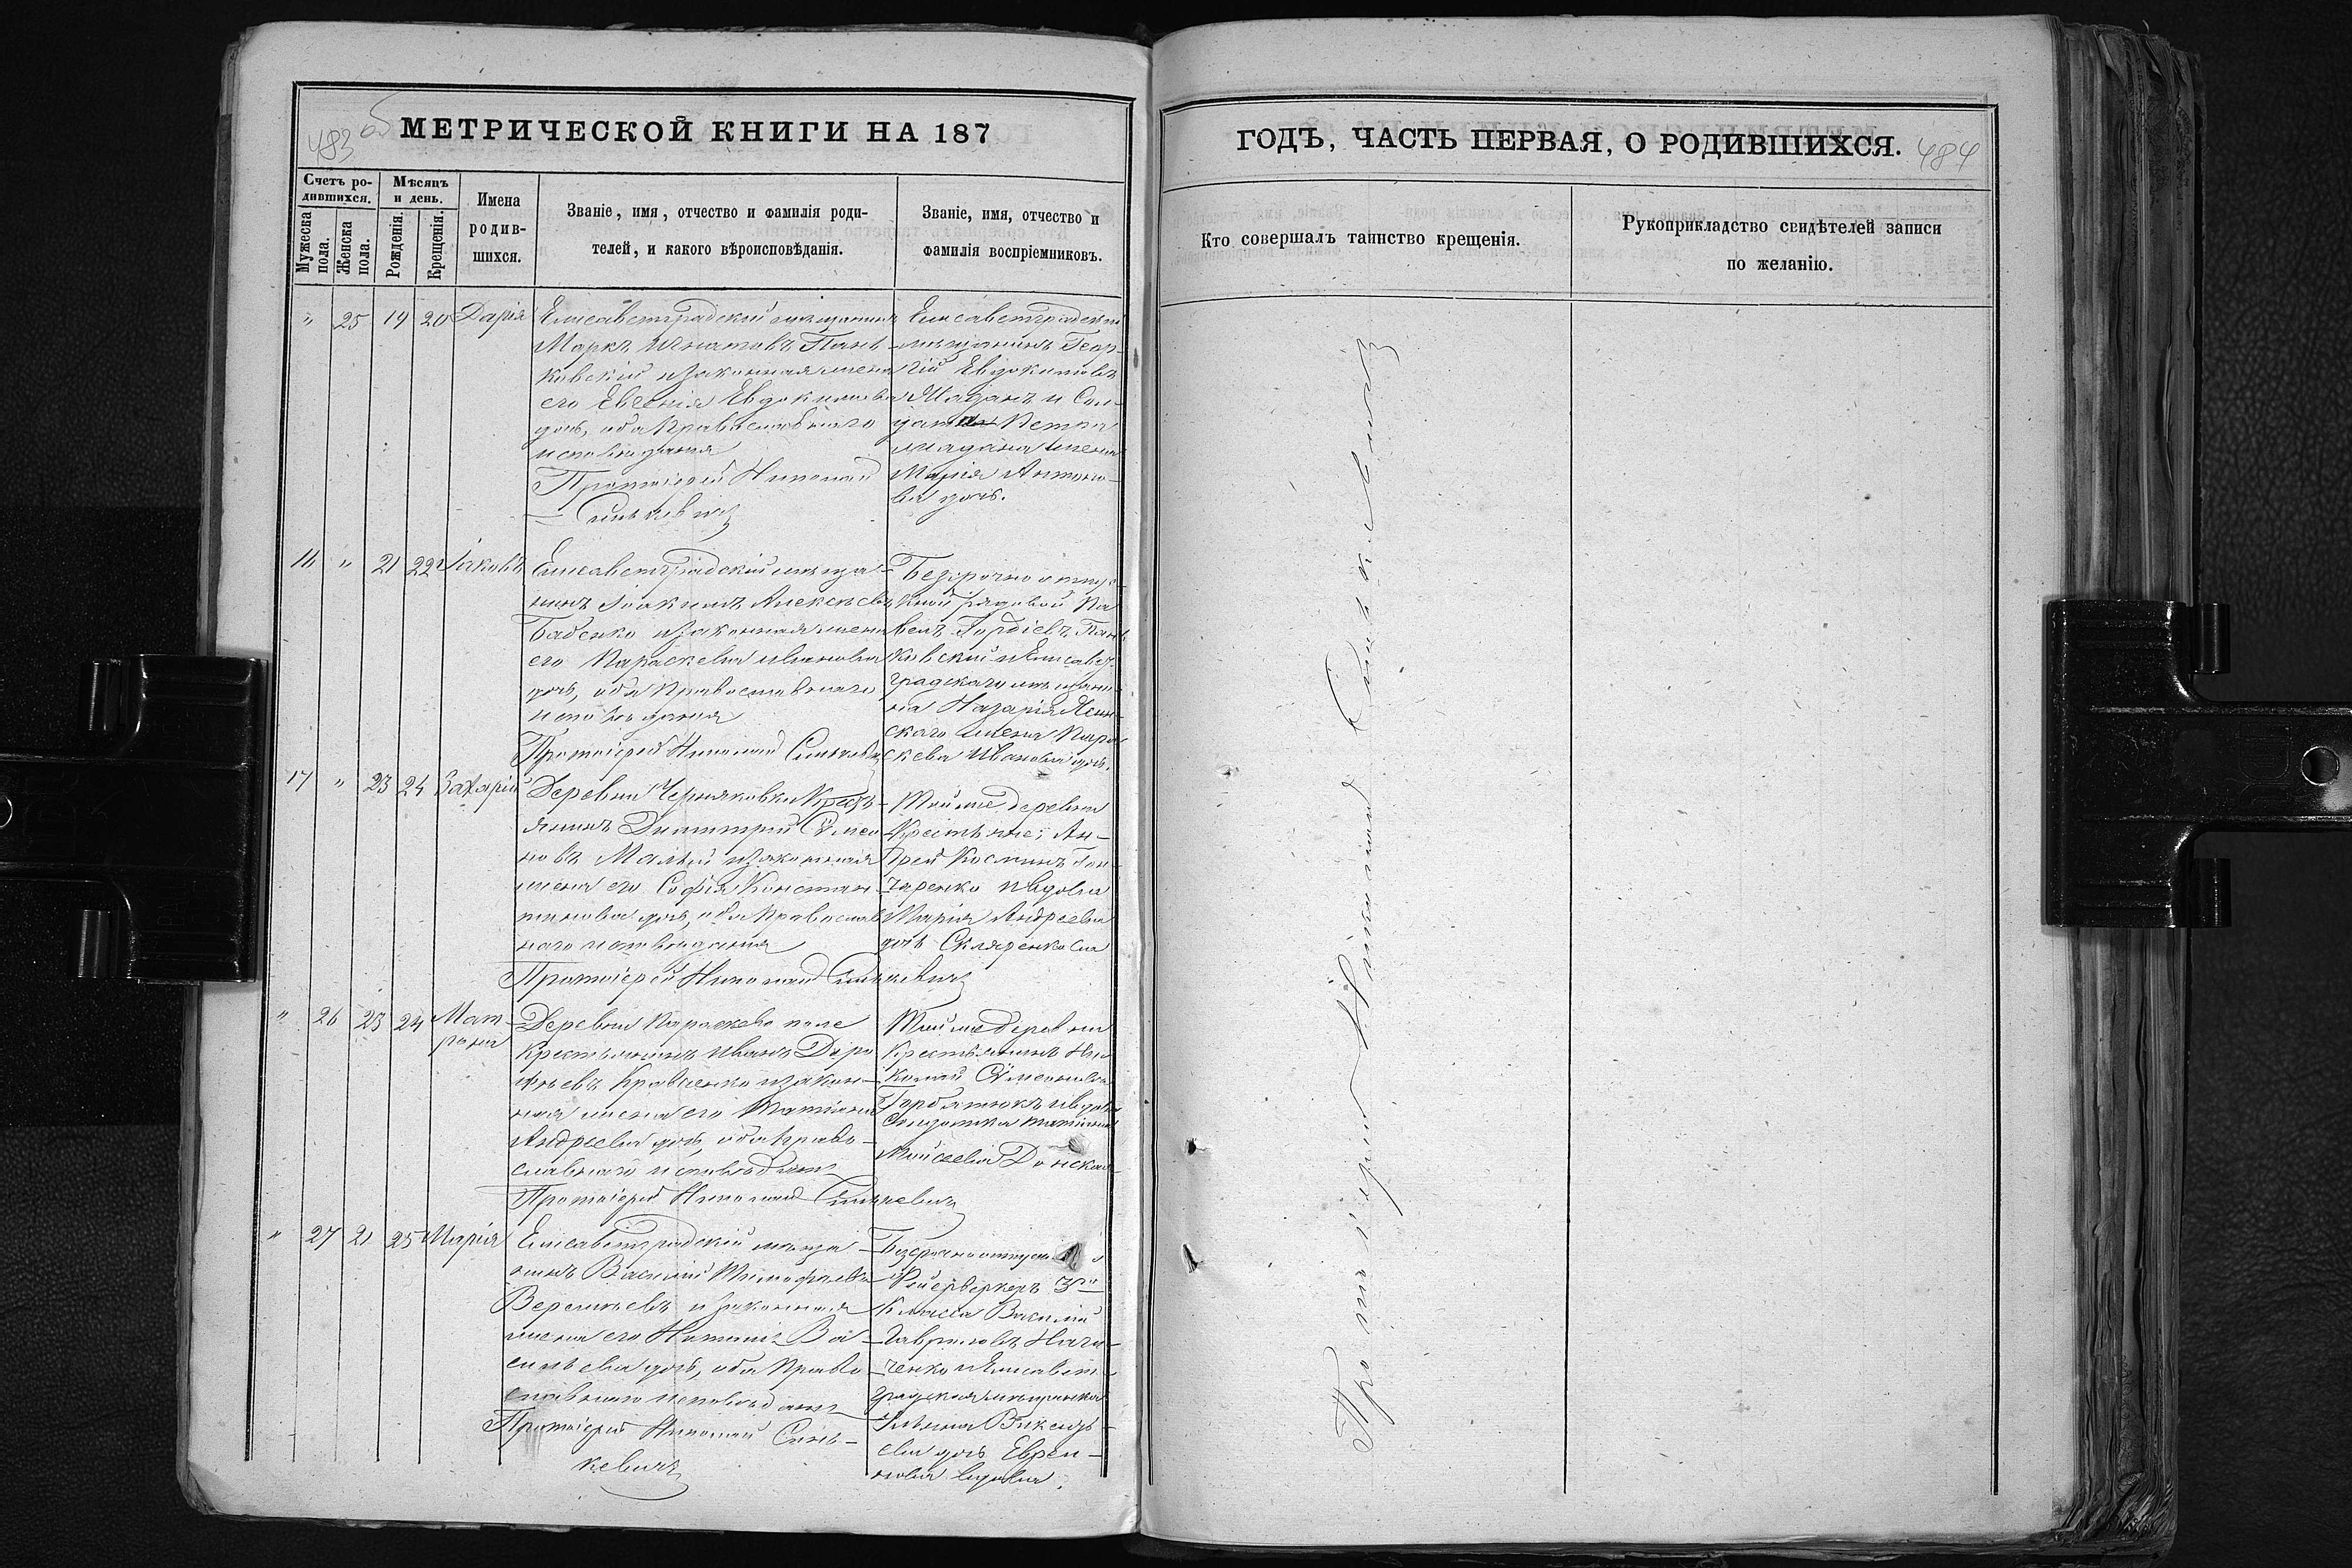 483 об
МЕТРИЧЕСКОЙ КНИГИ НА 187
Счетъ ро-
дившихся.
Мѣсяцъ
и день.
Мужеска
пола.
Женска
пола.
Рожденія.
Крещенія.
Имена
родив-
шихся.
Званіе, имя, отчество и фамилія роди-
телей, и какого вѣроисповѣданія.
Званіе, имя, отчество и
фамилія воспріемниковъ.
" 25 19 20 Дарія
Елисаветградскій мѣщанинъ
Маркъ Игнатовъ Пань-
ковскій и законная жена
его Евгенія Евдокимова
дочь, оба Православнаго
исповѣданія
Протоіерей Николай
Синькевичъ
Елисаветградскій
мѣщанинъ Геор-
гій Евдокимовъ
Маданъ и Сол-
дата Петра
Мадана жена
Марія Антоно-
ва дочь.
16 " 21 22 Іаковъ
Елисаветградскій мѣща-
нинъ Іоакимъ Алексѣевъ
Бабенко и законная жена
его Параскева Иванова
дочь, оба Православнаго
исповѣданія
Протоіерей Николай Синькевичъ
Безсрочно отпуск-
ной рядовой Па-
велъ Гордіевъ Пань-
ковскій и Елисавет-
градскаго мѣщани-
на Назарія
скаго жена Пара-
скева Иванова дочь.
17 " 23 24 Захарій
Деревни Черняховки Кресть-
янинъ Димитрій Сѵмео-
новъ Малый и законная
жена его Софія Констан-
тинова дочь, оба Православ-
наго исповѣданія
Протоіерей Николай Синькевичъ
Той же деревни
Крестьяне: Ан-
дрей Косминъ Гон-
чаренко и вдова
Марія Андреева
дочь Скляренкова
" 26 23 24 Мат-
рона
Деревни Параскево поле
Крестьянинъ Иванъ Доро-
феевъ Кравченко и закон-
ная жена его Татіана
Андреева дочь, оба Право-
славнаго исповѣданія
Протоіерей Николай Синькевичъ
Той же деревни
Крестьянинъ Ни-
колай Сѵмеоновъ
Горбатюкъ и вдова
Солдатка Татіана
Моисеева Донская
" 27 21 25 Марія
Елисаветградскій мѣща-
нинъ Василій Тимофеевъ
Веремьевъ и законная
жена его Наталія Ва-
сильева дочь, оба Право-
славнаго исповѣданія
Протоіерей Николай Синь-
кевичъ
Безсрочно отпускной
Фейерверкеръ 3го
Класса Василій
Гавриловъ
ченко и Елисавет-
градская мѣщанка
Викентъ-
ева дочь
нова вдова.
ГОДЪ, ЧАСТЬ ПЕРВАЯ, О РОДИВШИХСЯ.
484
Кто совершалъ таинство крещенія.
Рукоприкладство свидѣтелей записи
по желанію.
Протоіерей Николай Синькевичъ